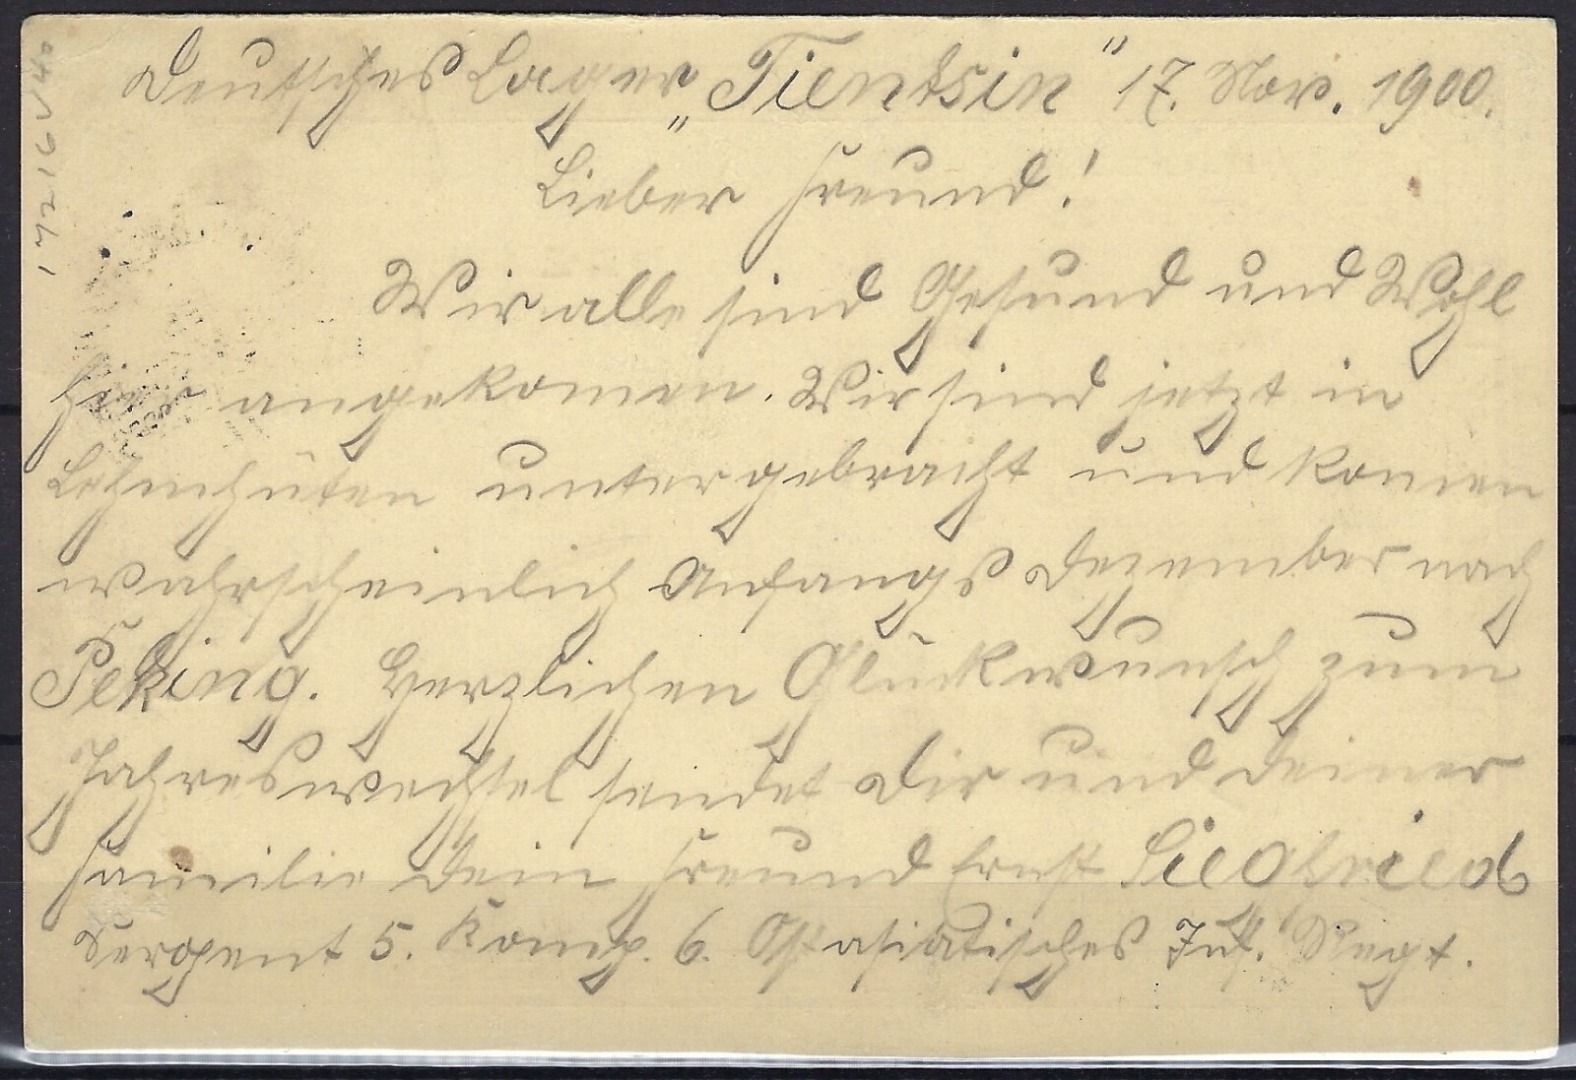 Deutsches Lager „Tientsin" 17. Nov. 1900.
Lieber Freund!
Wir alle sind Gesund und Wohl
hier angekomen. Wir sind jetzt in
Lehmhüten untergebracht und komen
wahrscheinlich Anfangs Dezember nach
Peking. Herzlichen Glückwunsch zum
Jahreswechsel sendet Dir und deiner
Familie dein Freund Ernst Siegfried
Sergent 5. Komp. 6. Ostasiatisches Inf. Regt.